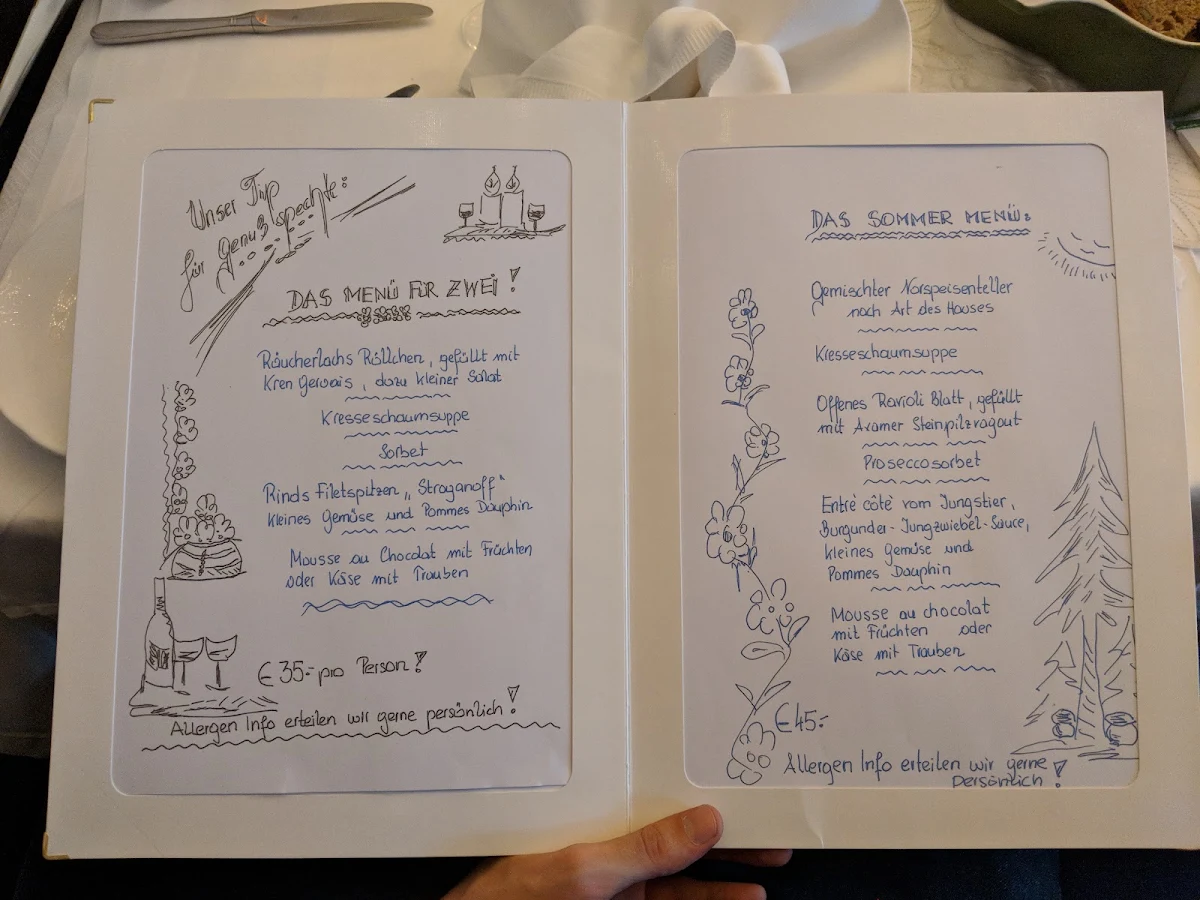 Unser Tip
für Genuß spechte:
DAS MENÜ FÜR ZWEI!
Räucherlachs Röllchen, gefüllt mit
Kren Gervais, dazu kleiner Salat
Kresseschaumsuppe
Sorbet
Rinds Filetspitzen „Stroganoff“
kleines Gemüse und Pommes Dauphin
Mousse au Chocolat mit Früchten
oder Käse mit Trauben
€ 35.- pro Person!
Allergen Info erteilen wir gerne persönlich!
DAS SOMMER MENÜ:
Gemischter Vorspeisenteller
nach Art des Hauses
Kresseschaumsuppe
Offenes Ravioli Blatt, gefüllt
mit Axamer Steinpilzragout
Proseccosorbet
Entré côté vom Jungstier,
Burgunder-Jungzwiebel-Sauce,
kleines Gemüse und
Pommes Dauphin
Mousse au chocolat
mit Früchten oder
Käse mit Trauben
€45.-
Allergen Info erteilen wir gerne
persönlich!